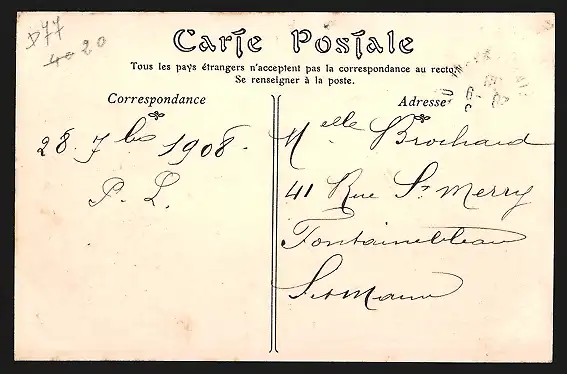 D77
40 20
Carte Postale
Tous les pays étrangers n'acceptent pas la correspondance au recto.
Se renseigner à la poste.
Correspondance
Adresse
28. 7bre 1908.
P. L.
Melle Brochard
41 Rue St Merry
Fontainebleau
S et Marne